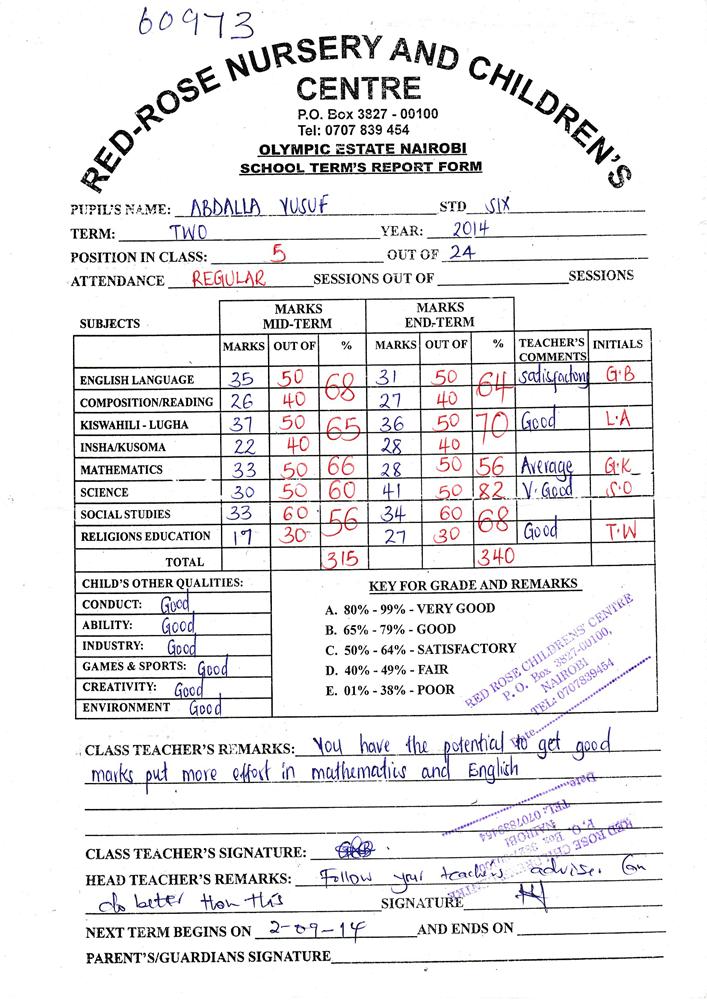 60973
RED-ROSE NURSERY AND CHILDREN'S
CENTRE
P.O. Box 3827 - 00100
Tel: 0707 839 454
OLYMPIC ESTATE NAIROBI
SCHOOL TERM'S REPORT FORM
PUPIL'S NAME: ABDALLA YUSUF STD SIX
TERM: TWO YEAR: 2014
POSITION IN CLASS: 5 OUT OF 24
ATTENDANCE REGULAR SESSIONS OUT OF SESSIONS
SUBJECTS MARKS MID-TERM MARKS END-TERM
MARKS OUT OF % MARKS OUT OF % TEACHER'S COMMENTS INITIALS
ENGLISH LANGUAGE 35 50 68 31 50 64 Satisfactory G.B
COMPOSITION/READING 26 40 27 40
KISWAHILI - LUGHA 37 50 65 36 50 70 Good L.A
INSHA/KUSOMA 22 40 28 40
MATHEMATICS 33 50 66 28 50 56 Average G.K
SCIENCE 30 50 60 41 50 82 V. Good S.O
SOCIAL STUDIES 33 60 56 34 60 68
RELIGIONS EDUCATION 17 30 27 30 Good T.W
TOTAL 315 340
CHILD'S OTHER QUALITIES:
CONDUCT: Good
ABILITY: Good
INDUSTRY: Good
GAMES & SPORTS: Good
CREATIVITY: Good
ENVIRONMENT Good
KEY FOR GRADE AND REMARKS
A. 80% - 99% - VERY GOOD
B. 65% - 79% - GOOD
C. 50% - 64% - SATISFACTORY
D. 40% - 49% - FAIR
E. 01% - 38% - POOR
RED ROSE CHILDRENS' CENTRE
P. O. Box 3827-00100,
NAIROBI
TEL: 0707839454
Date
CLASS TEACHER'S REMARKS: You have the potential to get good
marks put more effort in mathematics and English
Date
TEL: 0707839454
NAIROBI
P. O. Box
RED ROSE
CLASS TEACHER'S SIGNATURE:
HEAD TEACHER'S REMARKS: Follow your teachers advise. Can
do better than this SIGNATURE
NEXT TERM BEGINS ON 2-09-14 AND ENDS ON
PARENT'S/GUARDIANS SIGNATURE